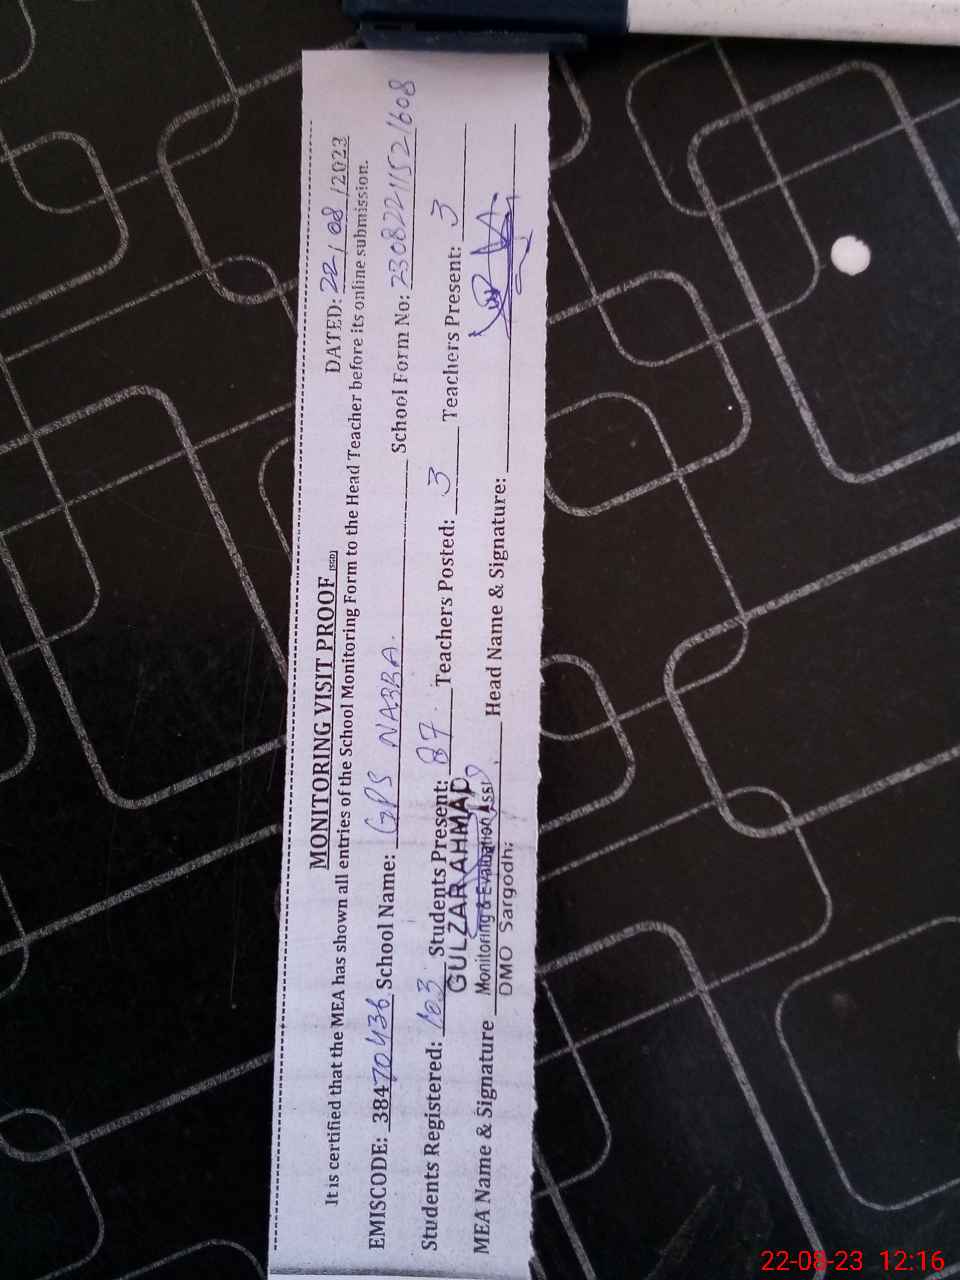 MONITORING VISIT PROOF (SGD)
DATED: 22/08/2023
It is certified that the MEA has shown all entries of the School Monitoring Form to the Head Teacher before its online submission.
EMISCODE: 38470436 School Name: GPS NABBA. School Form No: 23082211521608
Students Registered: 103 Students Present: 87. Teachers Posted: 3 Teachers Present: 3
GULZAR AHMAD
MEA Name & Signature Monitoring & Evaluation Asst Head Name & Signature:
DMO Sargodha
22-08-23 12:16